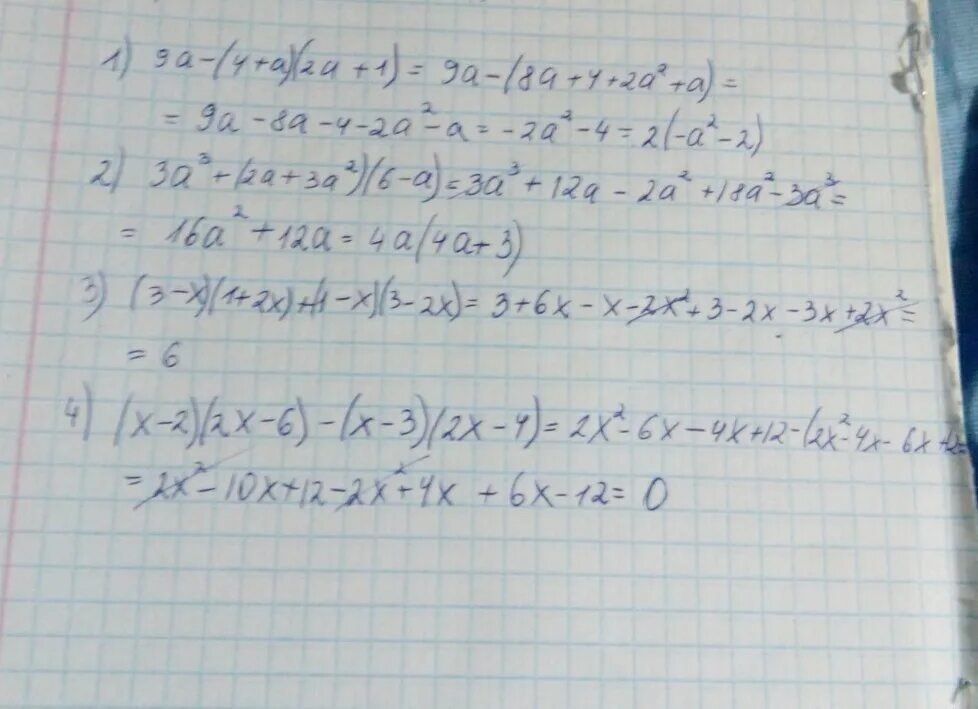 1) 9a-(4+a)(2a+1)= 9a-(8a+4+2a²+a)=
= 9a-8a-4-2a²-a=-2a²-4=2(-a²-2)
2) 3a³+(2a+3a²)(6-a)=3a³+12a-2a²+18a²-3a³=
= 16a²+12a=4a(4a+3)
3) (3-x)(1+2x)+(1-x)(3-2x)=3+6x-x-2x²+3-2x-3x+2x²=
= 6
4) (x-2)(2x-6)-(x-3)(2x-4)=2x²-6x-4x+12-(2x²-4x-6x
=2x²-10x+12-2x²+4x+6x-12=0